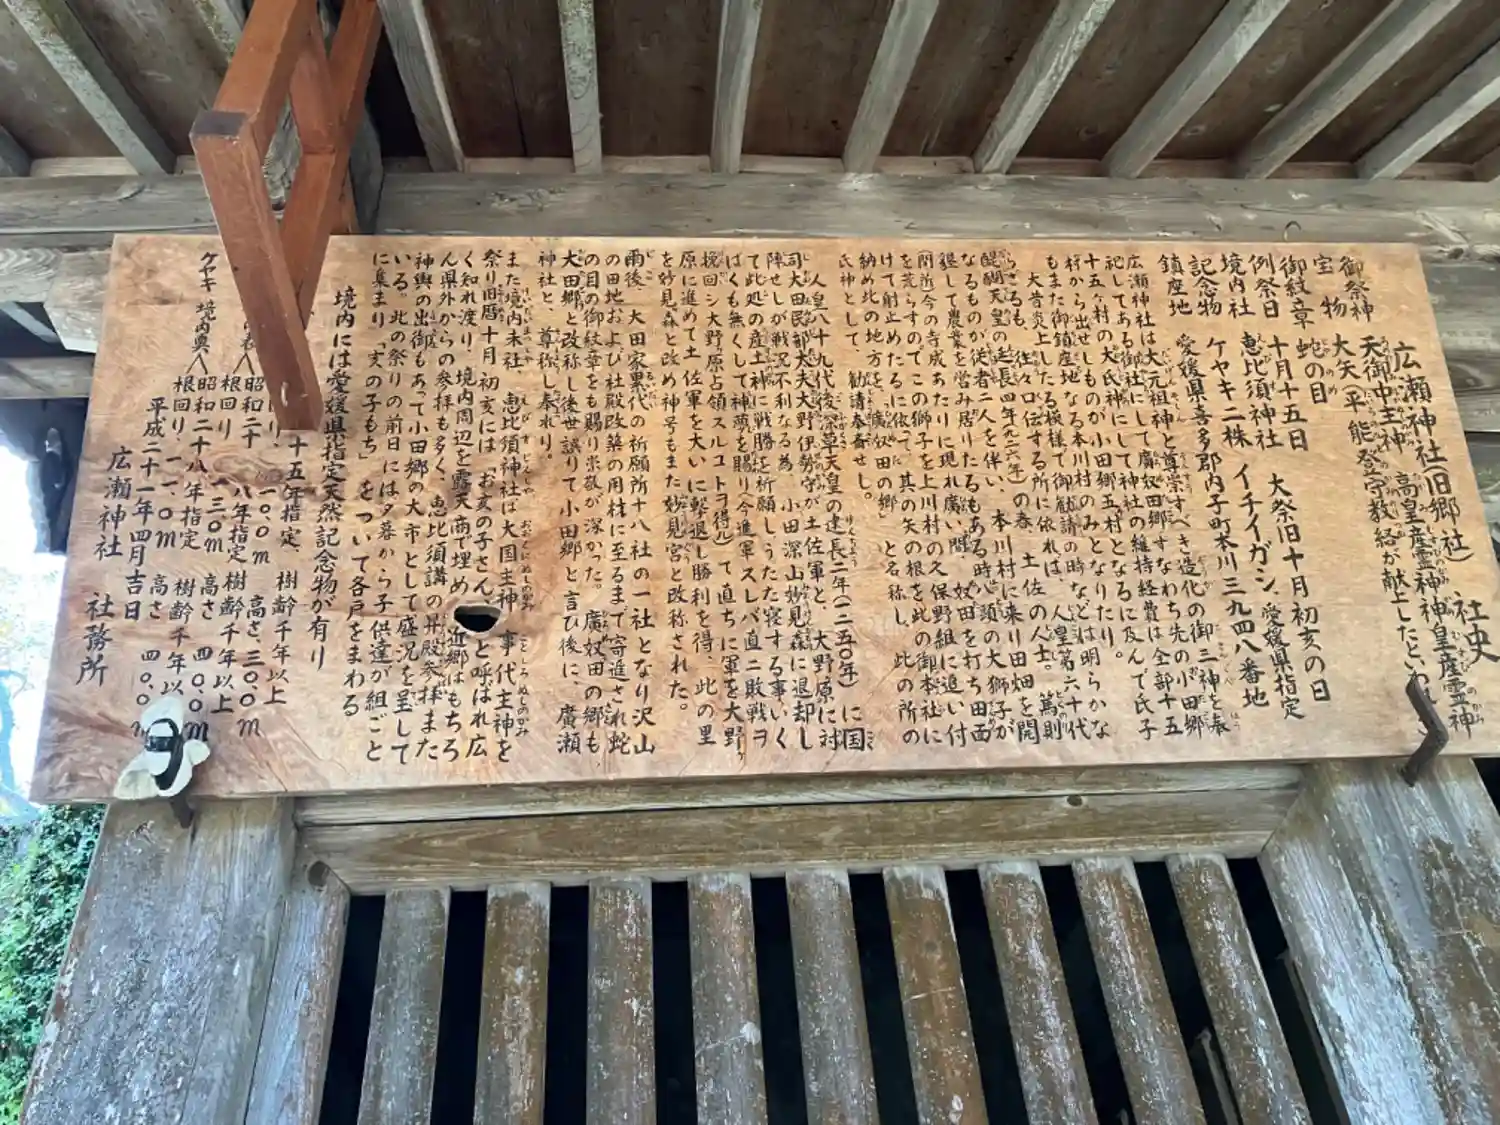 広瀬神社(旧郷社) 社史
御祭神 天御中主神 高皇産霊神 神皇産霊神
宝物 大矢(平能登守教経が献上したといわれ
御紋章 蛇の目
例祭日 十月十五日 大祭旧十月初亥の日
境内社 恵比須神社
記念物 ケヤキ二株 イチイガシ、愛媛県指定
鎮座地 愛媛県喜多郡内子町本川三九四八番地
広瀬神社は大元祖神と尊崇すべき造化の御三神を奉
祀してある御社にして廣奴田郷すなわち先の小田郷
十五ヶ村の大氏神にして神社の維持経費は全部十五
村から出せしものが小田郷五村となるに及んで氏子
もまた御鎮座地なる本川村のみとなりたり。
大昔炎上したる模様で御勧請の時などは明らかな
らざるも、往々口伝する所に依れば、人皇第六十代
醍醐天皇の延長四年(九二六年)の春、土佐の人士。篤則
なるものが従者二人を伴い、本川村に来り田畑を開
墾して農業を営み居りたるもある時八頭の大獅子が
(附近今の寺成あたりに現れ廣い間、奴田を打ち田面
を荒らすのでこの獅子を上川村の久保野組に追い付
けて射止めたるに依て、其の矢の根を此の御本社に
納め此の地方を「廣奴田の郷」と名称し、此の所の
氏神として、勧請奉斎せし。
人皇八十九代後深草天皇の建長二年(一二五〇年)に国
司大田民部大夫大野伊勢守が土佐軍と、大野原に対
陣せしが戦況不利なる為、小田深山妙見森に退却し
て此処の産土神に戦勝を祈願しうたた寝する事いく
ばくも無くして神夢を賜り(今進軍スレバ直ニ敗戦ヲ
挽回シ大野原占領スルコトヲ得ル)て直ちに軍を大野
原に進めて土佐軍を大いに撃退し勝利を得、此の里
を妙見森と改め神号もまた妙見宮と改称された。
雨後、大田家累代の祈願所十八社の一社となり沢山
の田地および社殿改築の用材に至るまで寄進され蛇
の目の御紋章をも賜り崇敬が深かった。廣奴田の郷も、
大田郷と改称し後世誤りて小田郷と言ひ後に、廣瀬
神社と、尊称し奉れり。
また境内末社、恵比須神社は大国主神、事代主神を
祭り旧暦十月初亥には「お亥の子さん」と呼ばれ広
く知れ渡り、境内周辺を露天商で埋め、近郷はもちろ
ん県外からの参拝も多く、恵比須講の昇殿参拝また
神輿の出御もあって小田郷の大市として盛況を呈して
いる。此の祭りの前日には夕暮から子供達が組ごと
に集まり「亥の子もち」をついて各戸をまわる
境内には愛媛県指定天然記念物が有り
十五年指定、樹齢千年以上
一〇、〇m 高さ、三〇、〇m
ケヤキ 昭和二十八年指定 樹齢千年以上
根回り 一三〇m 高さ 四〇、〇m
境内奥 昭和二十八年指定 樹齢千年以上
根回り、一一、〇m 高さ 四〇、〇m
平成二十一年四月吉日
広瀬神社 社務所